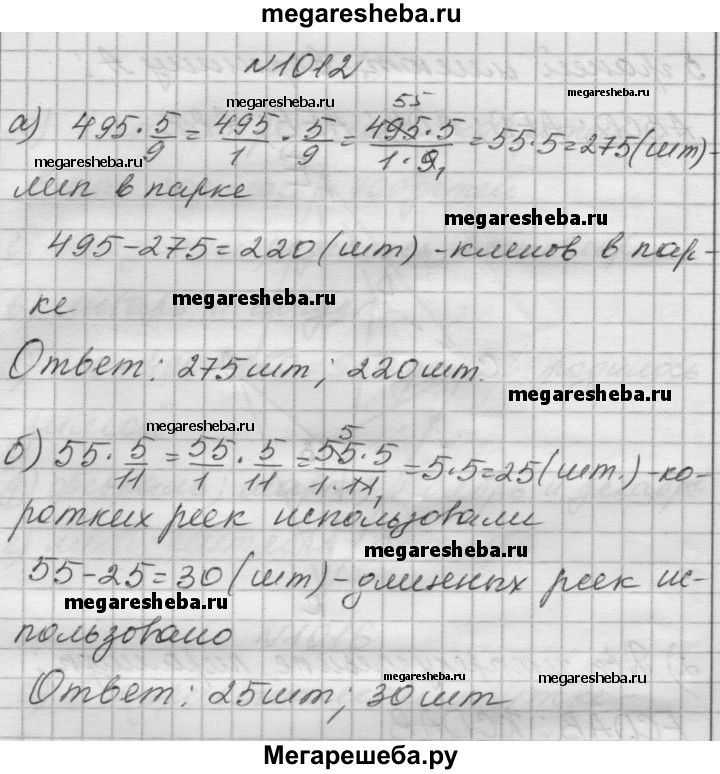 megaresheba.ru
№1012
megaresheba.ru
megaresheba.ru
а) 495 · 5/9 = 495/1 · 5/9 = 495·5/1·9 = 55·5 = 275 (шт) -
55
1
megaresheba.ru
лип в парке
megaresheba.ru
495 - 275 = 220 (шт) - кленов в пар-
ке
megaresheba.ru
Ответ: 275 шт; 220 шт.
megaresheba.ru
megaresheba.ru
б) 55 · 5/11 = 55/1 · 5/11 = 55·5/1·11 = 5·5 = 25 (шт.) - ко-
5
1
ротких реек использовали
megaresheba.ru
55 - 25 = 30 (шт) - длинных реек ис-
megaresheba.ru
пользовано
megaresheba.ru
megaresheba.ru
Ответ: 25 шт; 30 шт
Мегарешеба.ру